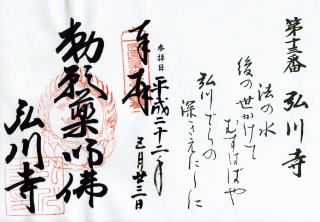 第十三番 弘川寺
法の水
後の世かけて
むすばばや
弘川でらの
深きえにしに
奉拝
参拝日 平成二十二年
五月廿三日
勅願薬師佛
弘川寺